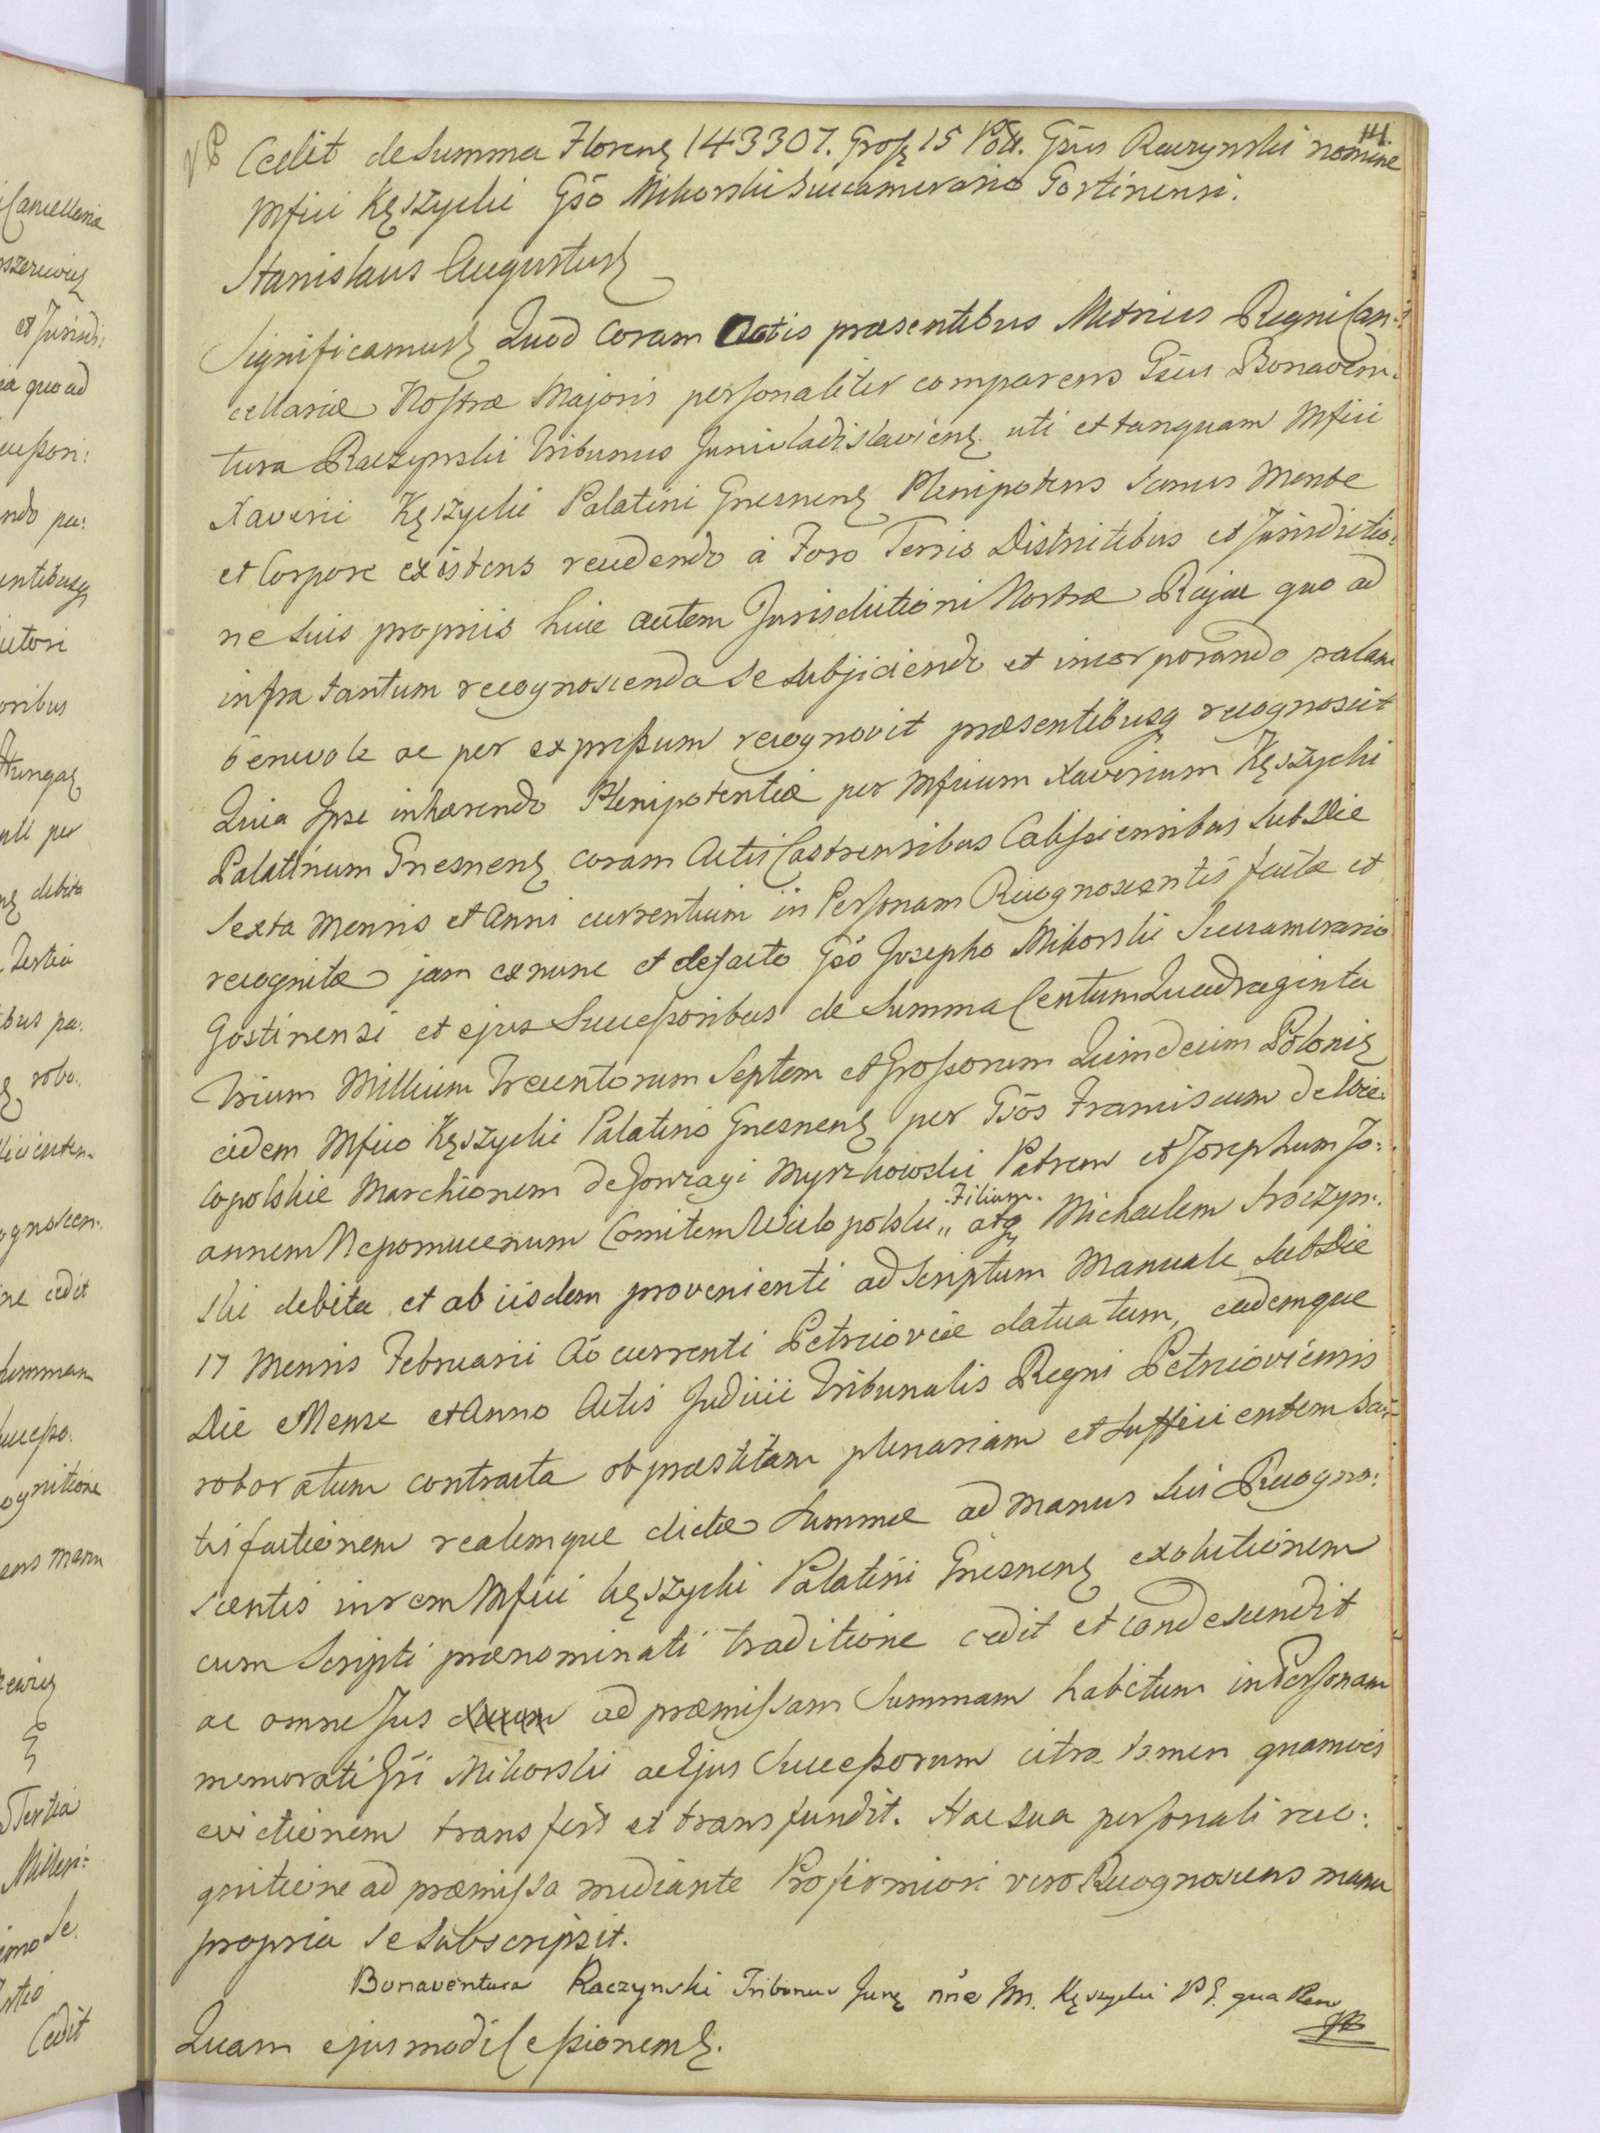 141.
Cedit de Summa Florenz 143307. Gross 15 Poll. Gsus Raczynski nomine
Mfici Kęszycki Gso Mikorski Succamerario Gostinensi.
Stanislaus Augustus
Significamus Quod Coram Actis præsentibus Metrices Regni Can-
cellariæ Nostræ Majoris personaliter comparens Gsus Bonaven-
tura Raczynski Tribunus Juniuladislaviens. uti et tanquam Mfici
Xaverii Kęszycki Palatini Gnesnens Plenipotens Sanus Mente
et Corpore existens recedendo à Foro Terris Districtibus et Jurisdictio:
ne Suis propriis huic autem Jurisdictioni Nostræ Rajae quo ad
infra tantum recognoscenda Se Subjiciendo et incorporando palam
benevole ac per expressum recognovit præsentibusq recognoscit
Quia Ipse inhærendo Plenipotentiæ per Mficum Xaverium Kęszycki
Palatinum Gnesnens coram Actis Castrensibus Calissiensibus Sub Die
Sexta Mensis et Anni currentium in Personam Recognoscentis factæ et
recognitæ jam ex nunc et de facto Gso Josepho Mikorski Succamerario
Gostinensi et ejus Successoribus de Summa Centum Quadraginta
Trium Millium Trecentorum Septem et Grossorum Quindecim Poloniz
eidem Mfico Kęszycki Palatino Gnesnens per Gsos Franciscum de Wie:
lopolskie Marchionem de Gonzagi Myszkowski Patrem et Josephum Jo:
annem Nepomucenum Comitem Wielopolski „ Filium. atq Michaelem Soczyn:
ski debita et ab iisdem provenienti ad Scriptum Manuale Sub Die
17 Mensis Februarii Ao currenti Petricoviæ datuatum, eademque
Die Mense et Anno Actis Judicii Tribunalis Regni Petricoviensis
roboratum contracta ob præstitam plenariam et Sufficientem Sa-
tisfactionem realemque dictæ Summæ ad manus Sui Recogno:
scentis in rem Mfici Kęszycki Palatini Gnesnens exolutionem
cum Scripti prænominati traditione cedit et Condescendit
ac omne Jus ad præmissam Summam habitum in Personam
memorati Gsi Mikorski ac Ejus Successorum citra tamen quamvis
evictionem transfert et transfundit. Hac Sua personali reco:
gnitione ad præmissa mediante Pro firmiori vero Recognoscens manu
propria Se Subscripsit.
Bonaventura Raczynski Tribunus Junz nne Mn. Kęszycki P G. qua Plen
Quam ejusmodi Cessionem.